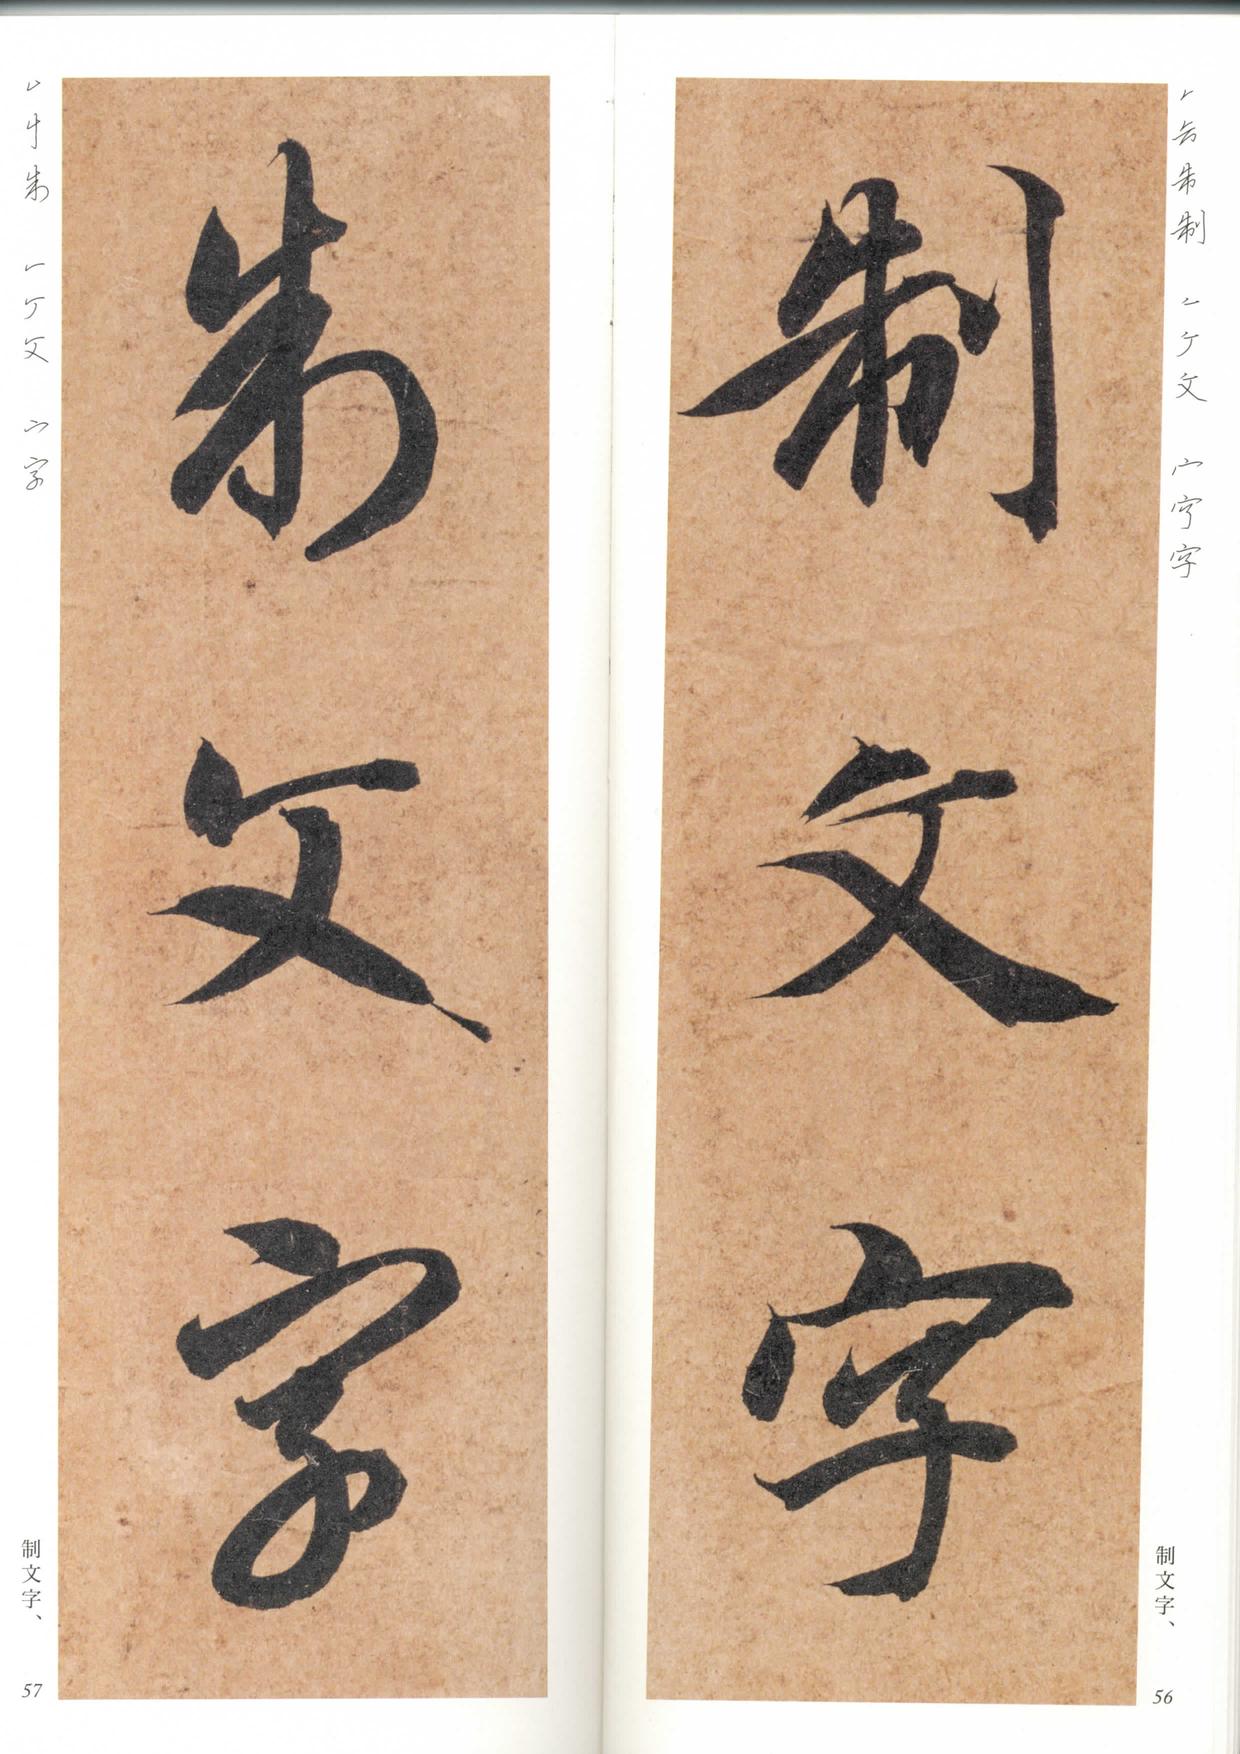 制文字
制文字、
56
制文字
制文字、
57